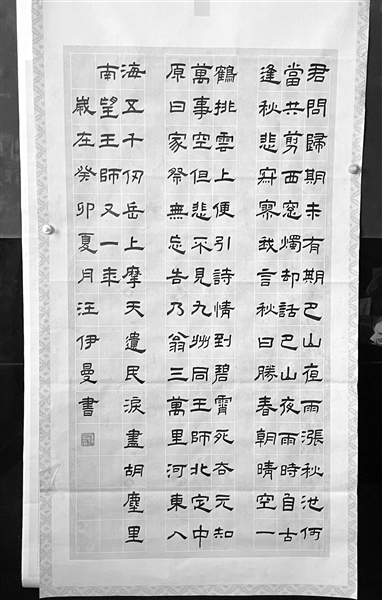 君問歸期未有期巴山夜雨漲秋池何
當共剪西窓燭却話巴山夜雨時自古
逢秋悲寂寥我言秋日勝春朝晴空一
鶴排雲上便引詩情到碧霄死去元知
萬事空但悲不見九州同王師北定中
原日家祭無忘告乃翁三萬里河東入
海五千仞岳上摩天遺民淚盡胡塵里
南望王師又一年
歲在癸卯夏月汪伊曼書